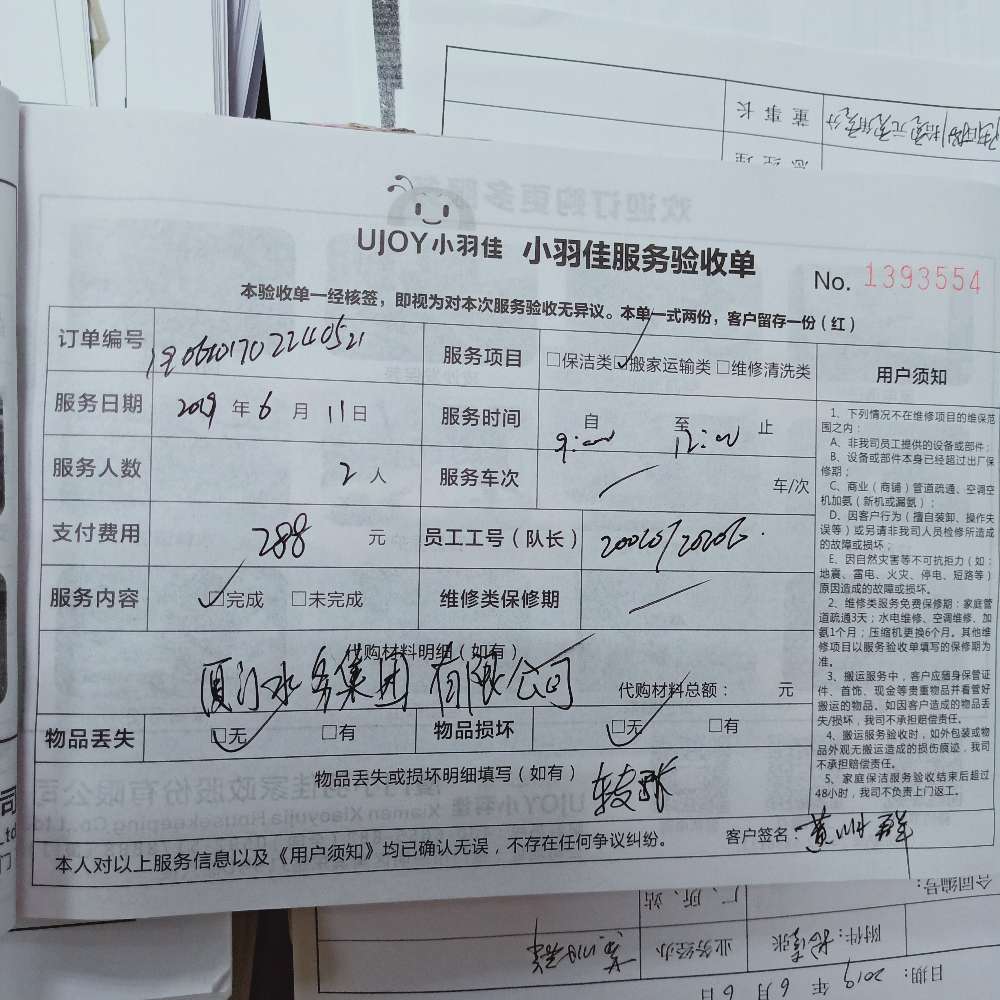 董事长
总经理
欢迎订购更多服务
UJOY小羽佳 小羽佳服务验收单
No. 1393554
本验收单一经核签，即视为对本次服务验收无异议。本单一式两份，客户留存一份（红）
订单编号
服务项目 □保洁类 ☑搬家运输类 □维修清洗类
服务日期 2019 年 6 月 11 日
服务时间 自 9:00 至 12:00 止
服务人数 2 人
服务车次 / 车/次
支付费用 288 元
员工工号（队长）
服务内容 ☑完成 □未完成
维修类保修期 /
代购材料明细（如有）
厦门水务集团有限公司
代购材料总额： 元
物品丢失 ☑无 □有
物品损坏 ☑无 □有
物品丢失或损坏明细填写（如有）
本人对以上服务信息以及《用户须知》均已确认无误，不存在任何争议纠纷。
客户签名：
用户须知
1、下列情况不在维修项目的维保范
围之内：
A、非我司员工提供的设备或部件；
B、设备或部件本身已经超过出厂保
修期；
C、商业（商铺）管道疏通、空调空
机加氨（新机或漏氨）；
D、因客户行为（擅自装卸、操作失
误等）或另请非我司人员检修所造成
的故障或损坏；
E、因自然灾害等不可抗拒力（如：
地震、雷电、火灾、停电、短路等）
原因造成的故障或损坏。
2、维修类服务免费保修期：家庭管
道疏通3天；水电维修、空调维修、加
氨1个月；压缩机更换6个月。其他维
修项目以服务验收单填写的保修期为
准。
3、搬运服务中，客户应随身保管证
件、首饰、现金等贵重物品并看管好
搬运的物品。如因客户造成的物品丢
失/损坏，我司不承担赔偿责任。
4、搬运服务验收时，如外包装或物
品外观无搬运造成的损伤痕迹，我司
不承担赔偿责任。
5、家庭保洁服务验收结束后超过
48小时，我司不负责上门返工。
合同编号：
厂、所、站
附件： 张
业务经办
日期： 2019 年 6 月 6 日